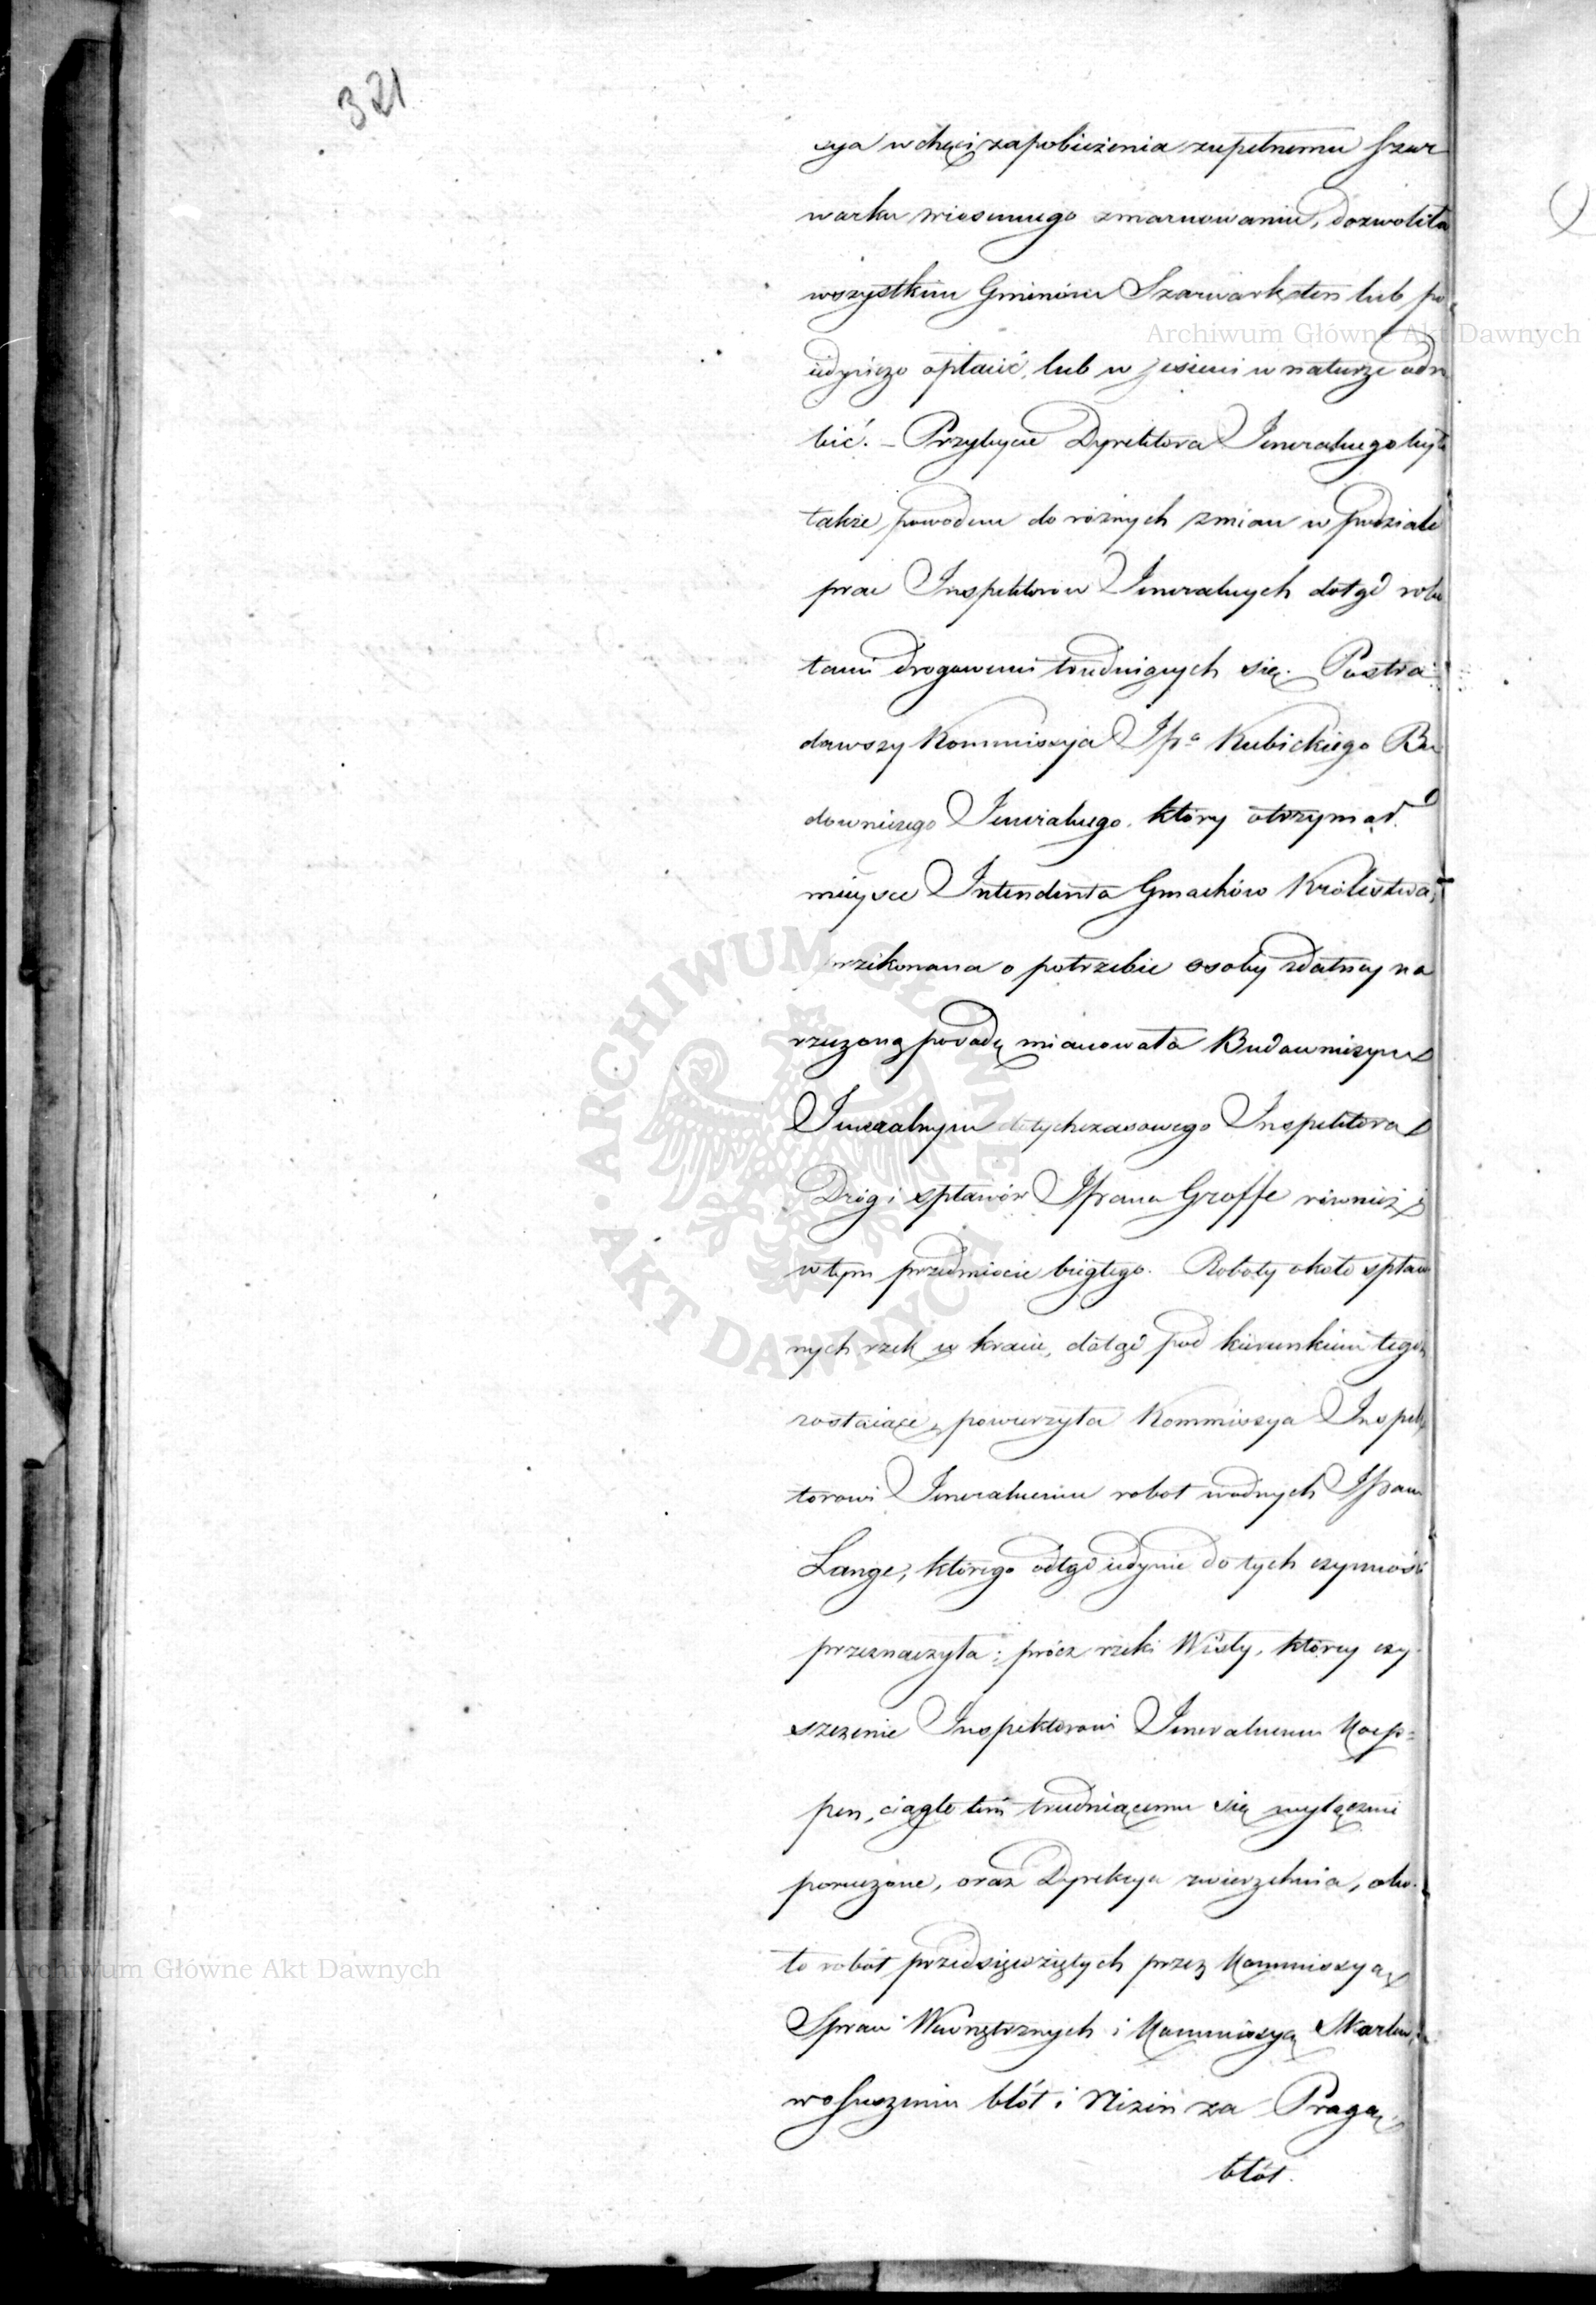 321
cya w chęci zapobieżenia zupełnemu szar
warku wiosennego zmarnowaniu, dozwoliła
wszystkim Gminom Szarwark ten lub po
iedyńczo opłacić, lub w jesieni w naturze odro
bić. – Przybycie Dyrektora Jeneralnego było
także powodem do różnych zmian w podziale
prac Inspektorów Jeneralnych dotąd robo
tami drogowemi trudniących się. Postra
dawszy Kommissya JPa Kubickiego Bu
downiczego Jeneralnego, który otrzymał
mieysce Intendenta Gmachów Królestwa,
przekonana o potrzebie osoby zdatney na
rzeczoną posadę mianowała Budowniczym
Jeneralnym dotychczasowego Inspektora
Dróg i spławów JPana Groffe również i
w tym przedmiocie biegłego. Roboty około spław
nych rzek w kraiu, dotąd pod kierunkiem tegoż
zostaiące, powierzyła Kommissya Inspek
torowi Jeneralnemu robot wodnych JPanu
Lange, którego odtąd iedynie do tych czynnoś
przeznaczyła; prócz rzeki Wisły, którey czy
szczenie Inspektorowi Jeneralnemu Koep-
pen, ciągle tem trudniącemu się wyłącznie
poruczone, oraz Dyrekcya zwierzchnia, oko
ło robót przedsięwziętych przez Kommissyą
Spraw Wewnętrznych i Kommissyą Skarbu,
w osuszeniu błót i Nizin za Pragą
błót.
Archiwum Główne Akt Dawnych
Archiwum Główne Akt Dawnych
ARCHIWUM GŁÓWNE AKT DAWNYCH